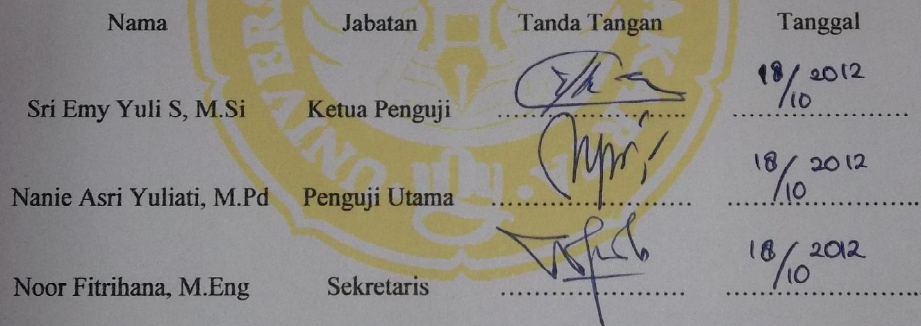 Nama Jabatan Tanda Tangan Tanggal
Sri Emy Yuli S, M.Si Ketua Penguji 18/10 2012
Nanie Asri Yuliati, M.Pd Penguji Utama 18/10 2012
Noor Fitrihana, M.Eng Sekretaris 18/10 2012